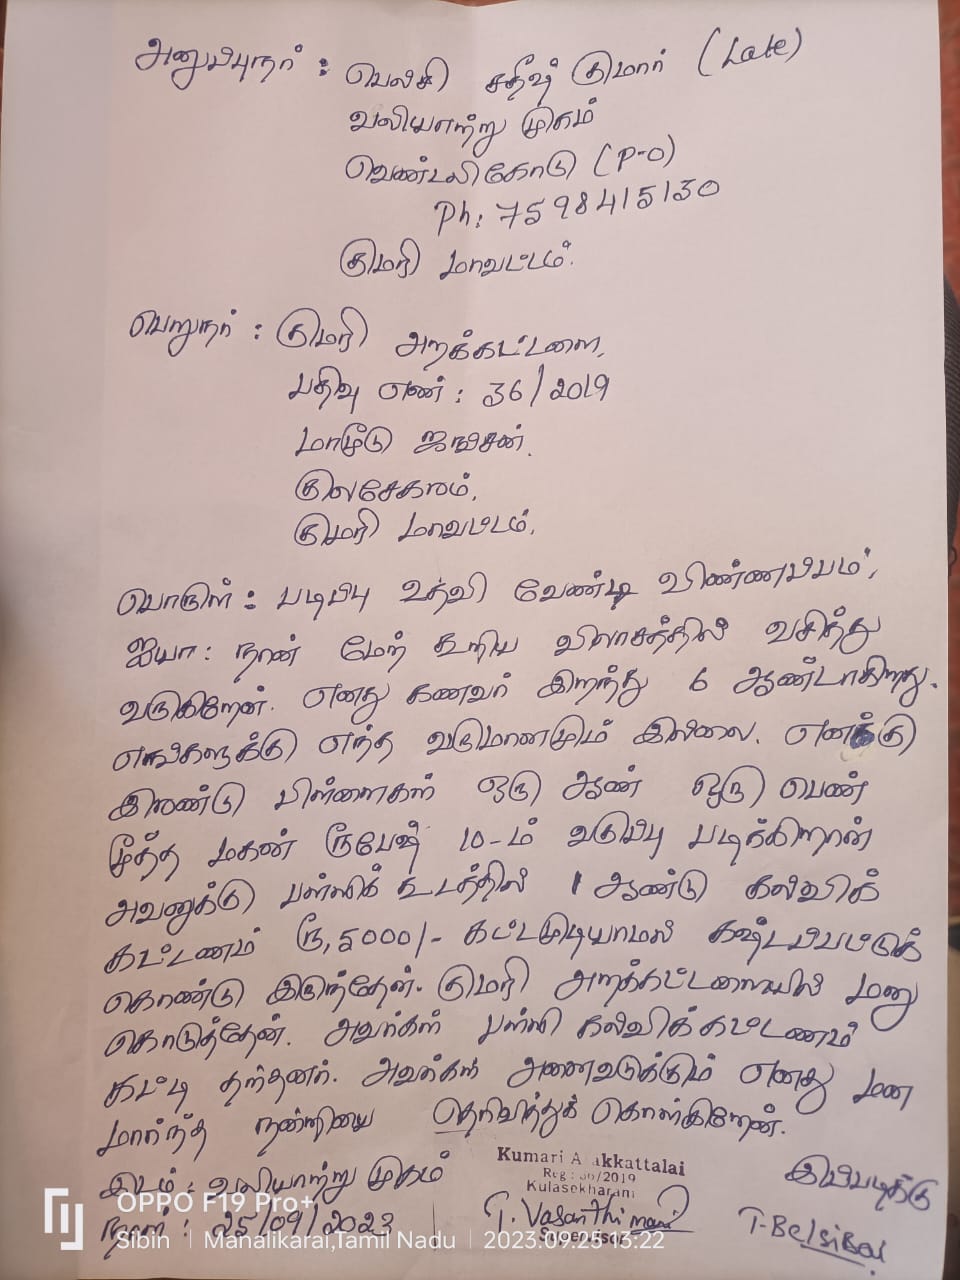 அனுப்புநர் : பெல்சி சதீஷ் குமார் (Late)
வலியாற்று முகம்
வெண்டலிகோடு (P-O)
Ph: 7598415130
குமரி மாவட்டம்.
பெறுநர் : குமரி அறக்கட்டளை,
பதிவு எண் : 36/2019
ஜங்சன்.
குலசேகரம்,
குமரி மாவட்டம்.
பொருள் : படிப்பு உதவி வேண்டி விண்ணப்பம்,
ஐயா : நான் மேற் கூறிய விலாசத்தில் வசித்து
வருகிறேன். எனது கணவர் இறந்து 6 ஆண்டாகிறது.
எங்களுக்கு எந்த வருமானமும் இல்லை. எனக்கு
இரண்டு பிள்ளைகள் ஒரு ஆண் ஒரு பெண்
மூத்த மகன் ரூபேஷ் 10-ம் வகுப்பு படிக்கிறான்
அவனுக்கு பள்ளிக் கூடத்தில் 1 ஆண்டு கல்விக்
கட்டணம் ரூ, 5000/- கட்டமுடியாமல் கஷ்டப்பட்டுக்
கொண்டு இருந்தேன். குமரி அறக்கட்டளையில் மனு
கொடுத்தேன். அவர்கள் பள்ளி கல்விக்கட்டணம்
கட்டி தந்தனர். அவர்கள் அனைவருக்கும் எனது மன
மார்ந்த நன்றியை தெரிவித்துக் கொள்கிறேன்.
இடம் : வலியாற்று முகம்
நாள் : 25/09/2023
Kumari A akkattalai
Reg : 36/2019
Kulasekharam
T. Vasanthi mani
Supervisor
இப்படிக்கு
T-Belsibai
OPPO F19 Pro+
Sibin | Manalikarai,Tamil Nadu | 2023.09.25 13:22